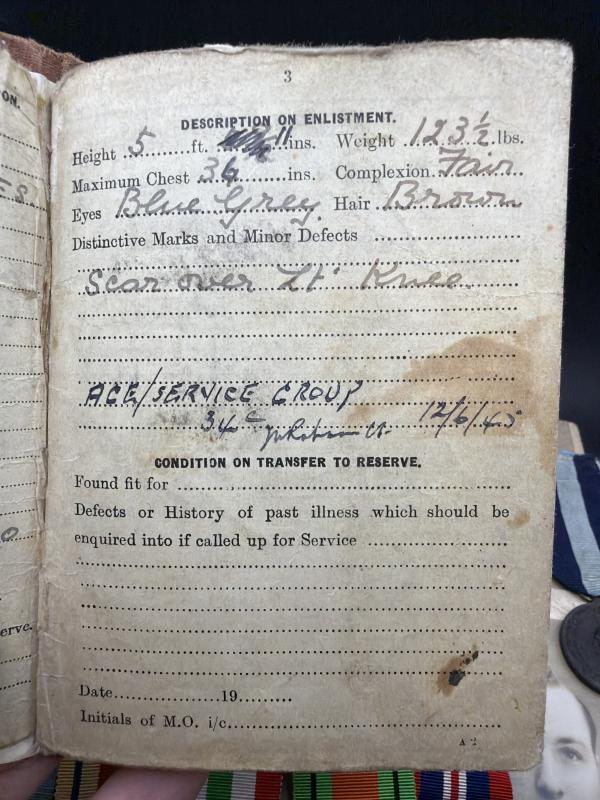 ON.
ES.
O
erve.
3
DESCRIPTION ON ENLISTMENT.
Height 5 ft. 11 ins. Weight 123½ lbs.
Maximum Chest 36 ins. Complexion Fair
Eyes Blue Grey. Hair Brown
Distinctive Marks and Minor Defects
Scar over Lt Knee.
AGE/SERVICE GROUP
34 C 12/6/45
CONDITION ON TRANSFER TO RESERVE.
Found fit for
Defects or History of past illness which should be
enquired into if called up for Service
Date 19
Initials of M.O. i/c